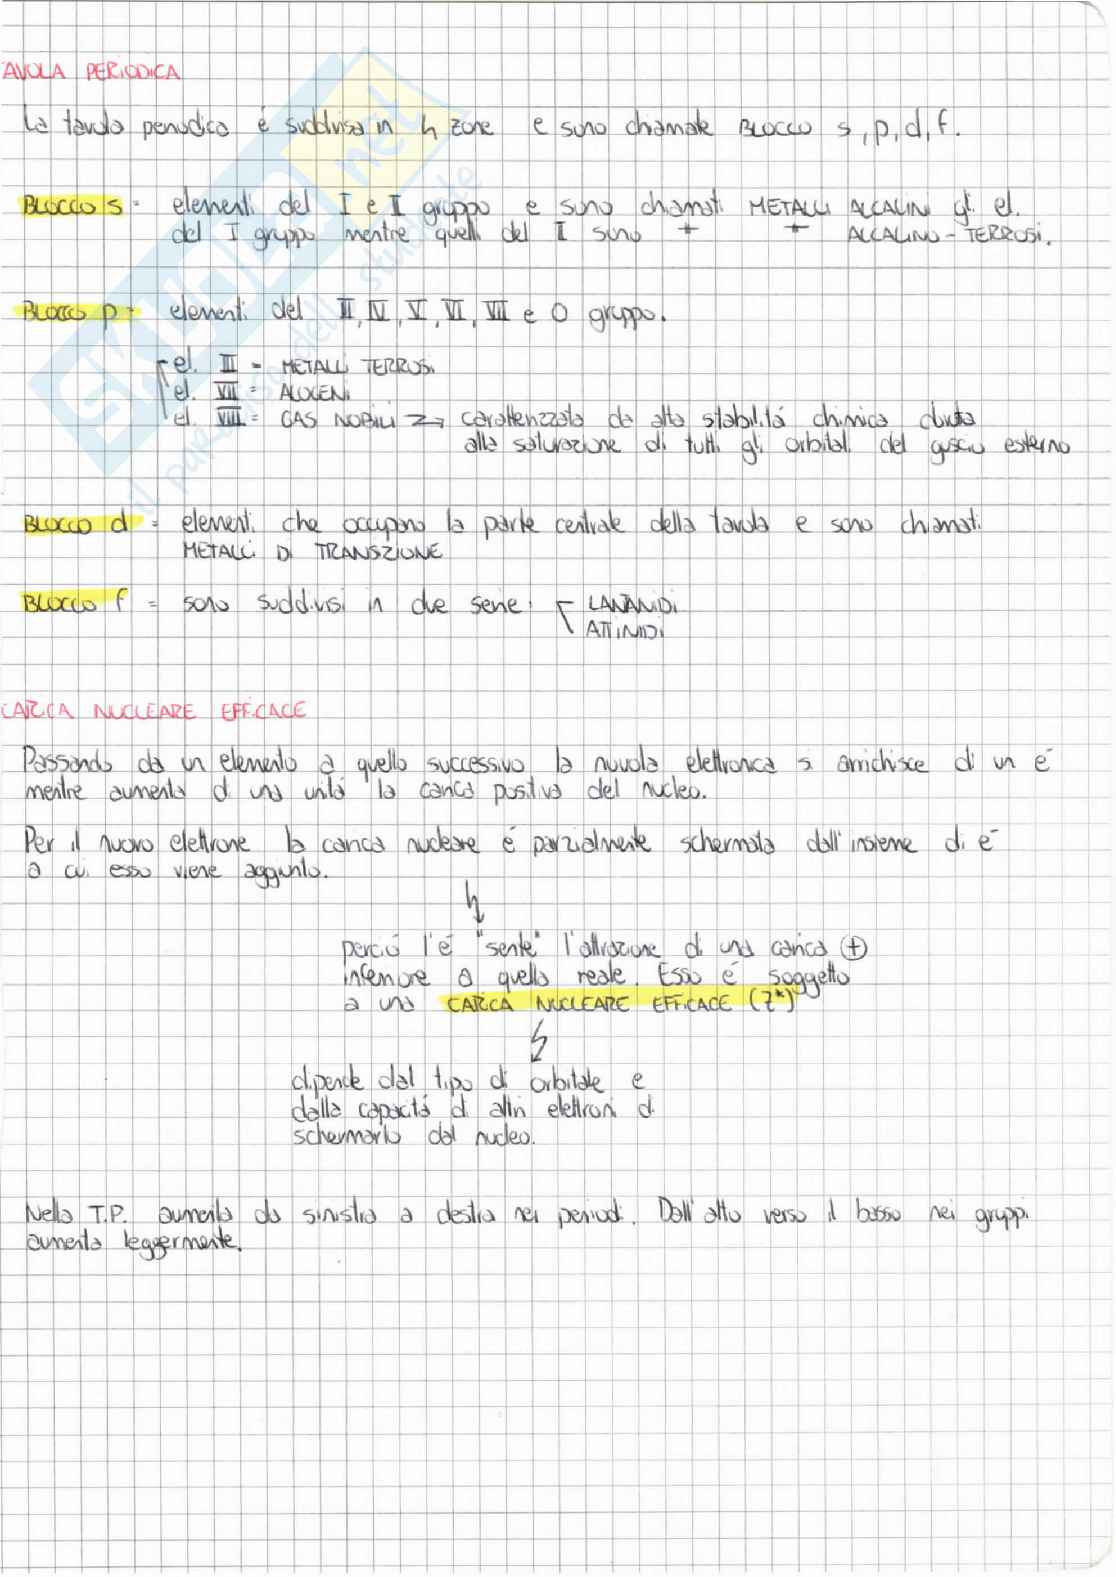 TAVOLA PERIODICA
La tavola periodica é suddivisa in 4 zone e sono chiamate BLOCCO s, p, d, f.
BLOCCO s = elementi del I e II gruppo e sono chiamati METALLI ALCALINI gli el.
del I gruppo mentre quelli del II sono " " ALCALINO-TERROSI.
BLOCCO p = elementi del III, IV, V, VI, VII e O gruppo.
el. III = METALLI TERROSI
el. VII = ALOGENI
el. VIII = GAS NOBILI → caratterizzata da alta stabilitá chimica dovuta
alla saturazione di tutti gli orbitali del guscio esterno
BLOCCO d = elementi che occupano la parte centrale della tavola e sono chiamati
METALLI DI TRANSZIONE
BLOCCO f = sono suddivisi in due serie: LANTANIDI
ATTINIDI
CARICA NUCLEARE EFFICACE
Passando da un elemento a quello successivo la nuvola elettronica si arricchisce di un e⁻
mentre aumenta di una unitá la carica positiva del nucleo.
Per il nuovo elettrone la carica nucleare é parzialmente schermata dall'insieme di e⁻
a cui esso viene aggiunto.
perció l'e⁻ "sente" l'attrazione di una carica ⊕
inferiore a quella reale. Esso é soggetto
a una CARICA NUCLEARE EFFICACE (Z*)
dipende dal tipo di orbitale e
dalla capacitá di altri elettroni di
schermarlo dal nucleo.
Nella T.P. aumenta da sinistra a destra nei periodi. Dall'alto verso il basso nei gruppi
aumenta leggermente.
Skuola.net
il paradiso dello studente